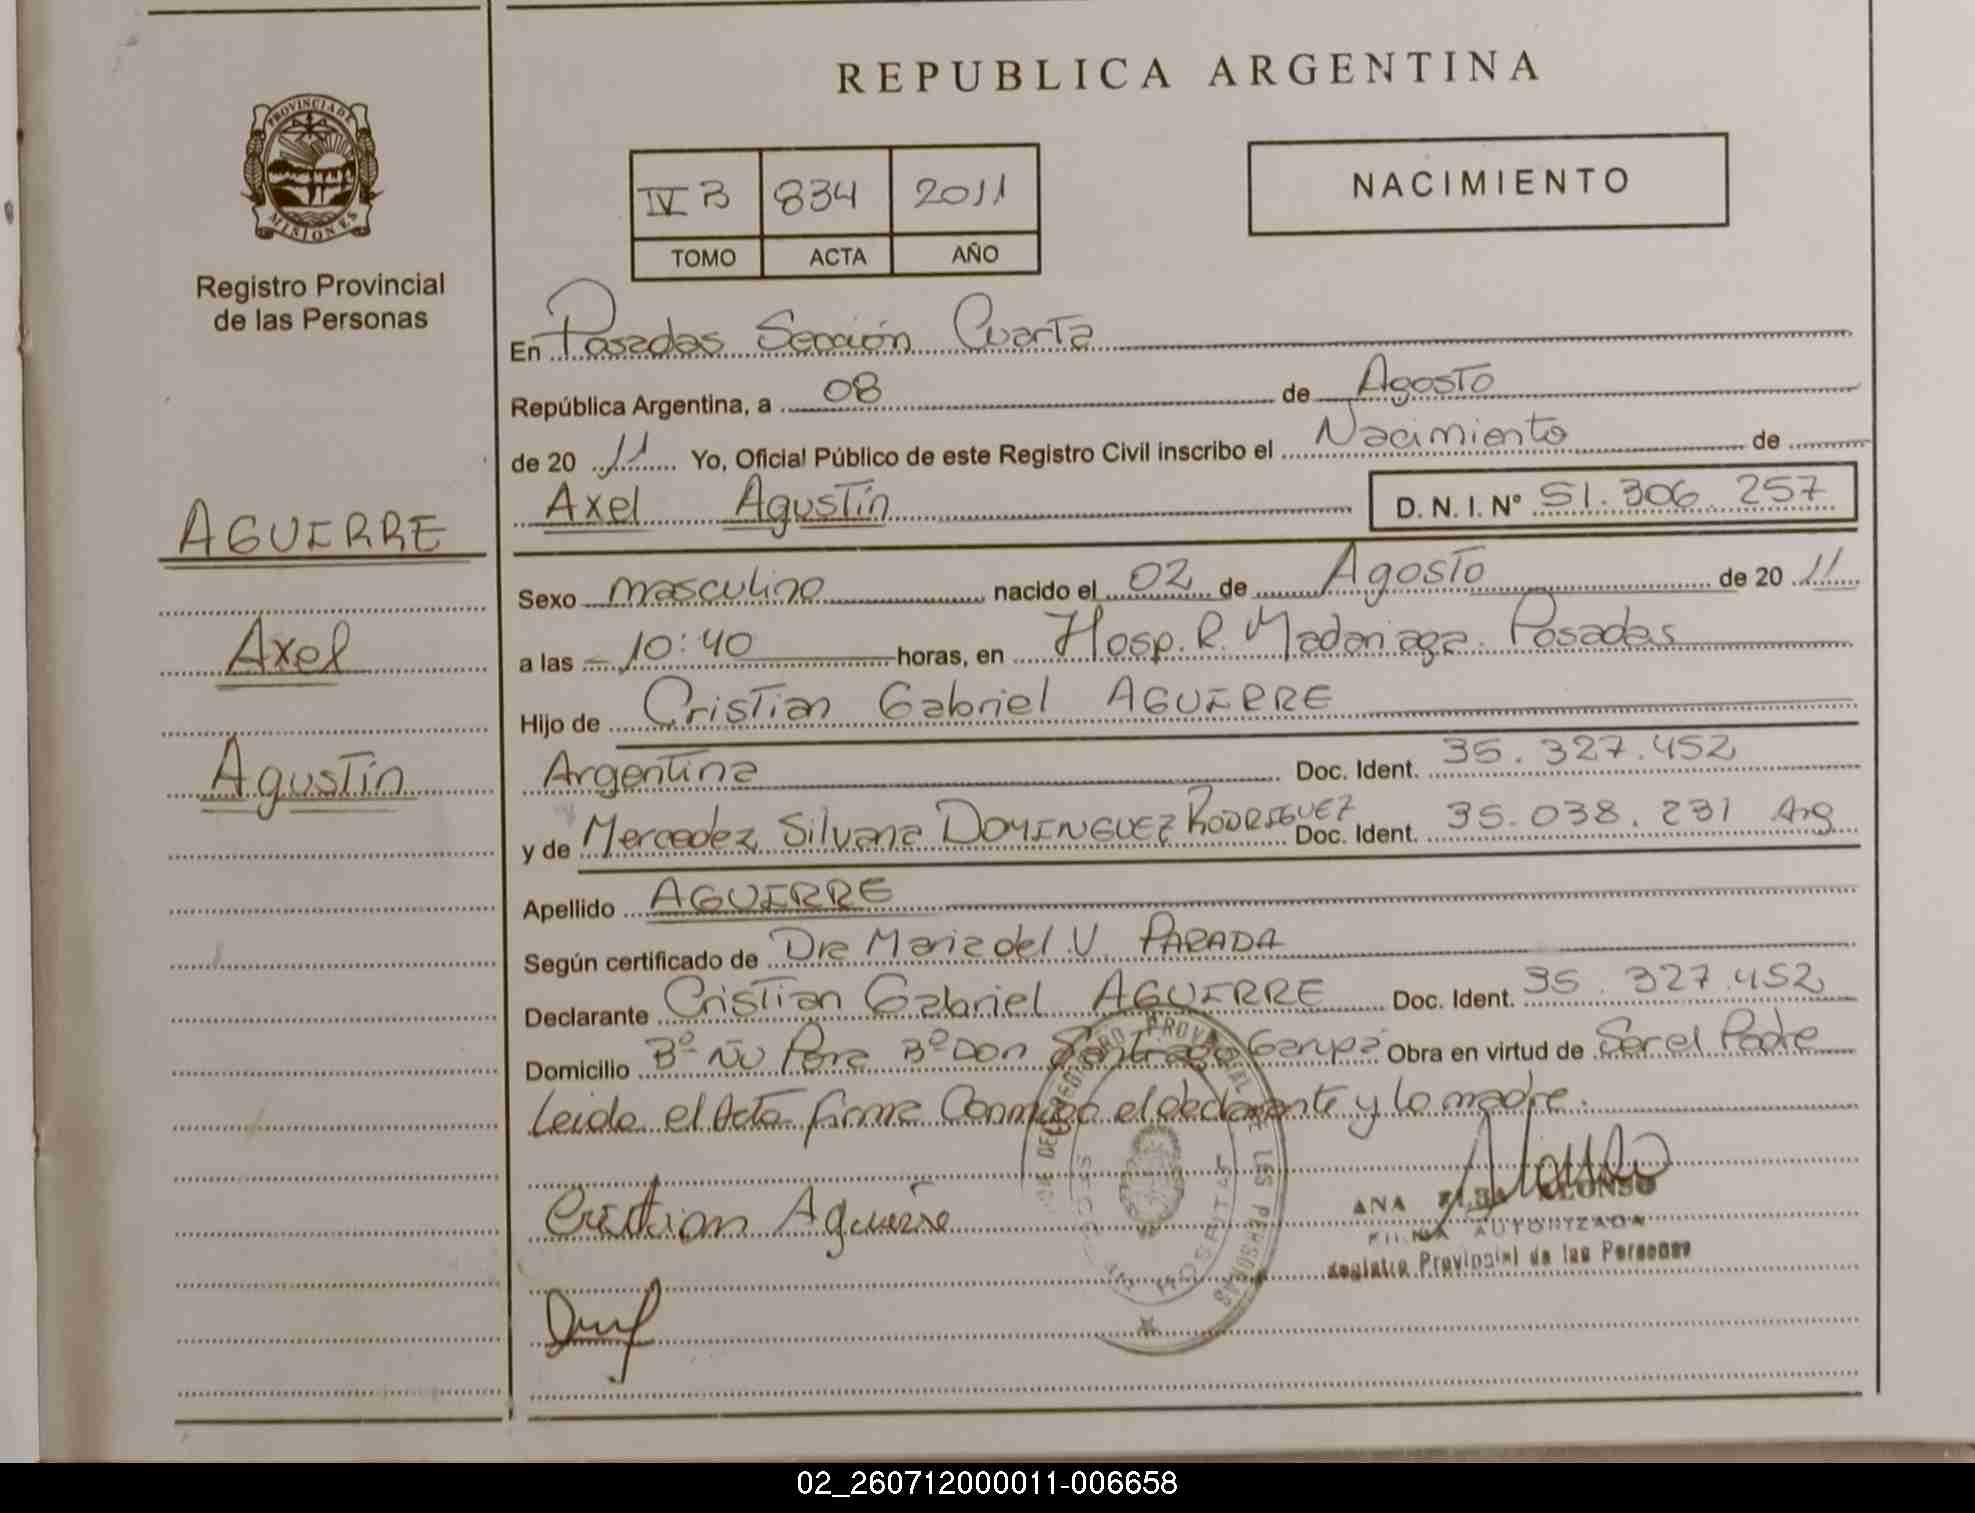 REPUBLICA ARGENTINA
PROVINCIA DE
MISIONES
Registro Provincial
de las Personas
IV B 834 2011
TOMO ACTA AÑO
NACIMIENTO
En Posadas Sección Cuarta
República Argentina, a 08 de Agosto
de 20 11 Yo, Oficial Público de este Registro Civil inscribo el Nacimiento de
Axel Agustín D. N. I. Nº 51.306.257
AGUERRE
Axel
Agustín
Sexo masculino nacido el 02 de Agosto de 20 11
a las 10:40 horas, en Hosp. R. Madariaga. Posadas
Hijo de Cristian Gabriel AGUERRE
Argentina Doc. Ident. 35.327.452
y de Mercedez Silvana DOMINGUEZ RODRIGUEZ Doc. Ident. 35.038.231 Arg
Apellido AGUERRE
Según certificado de Dra Maria del V. PARADA
Declarante Cristian Gabriel AGUERRE Doc. Ident. 35.327.452
Domicilio Bº Ñu Pora Bº Don Santiago Garupá Obra en virtud de Ser el Padre
Leida el Acta firma Conmigo el declarante y la madre.
Cristian Aguerre
ANA ELBA ALONSO
FIRMA AUTORIZADA
Registro Provincial de las Personas
02_260712000011-006658